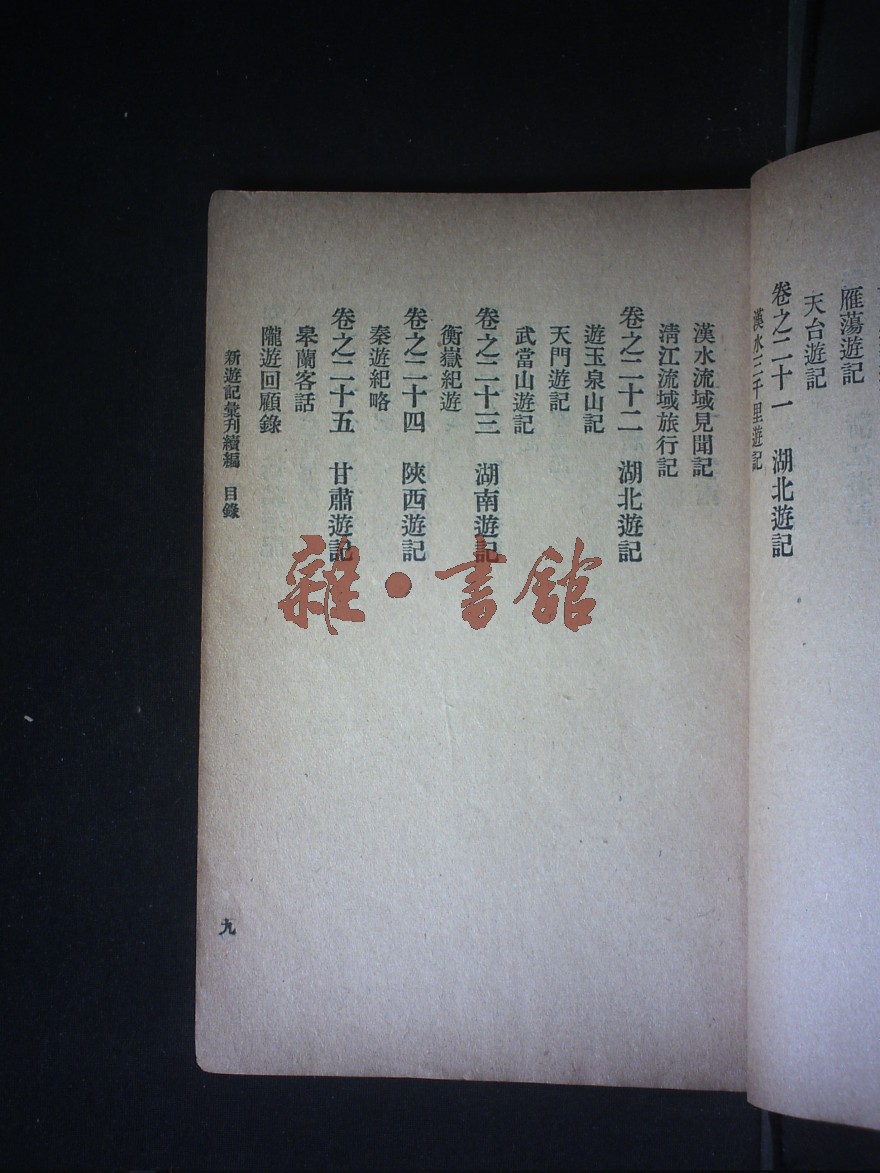 雁蕩遊記
天台遊記
卷之二十一 湖北遊記
漢水三千里遊記
漢水流域見聞記
淸江流域旅行記
卷之二十二 湖北遊記
遊玉泉山記
天門遊記
武當山遊記
卷之二十三 湖南遊記
衡嶽紀遊
卷之二十四 陝西遊記
秦遊紀略
卷之二十五 甘肅遊記
皋蘭客話
隴遊回顧錄
新遊記彙刊續編 目錄
九
雜·書館